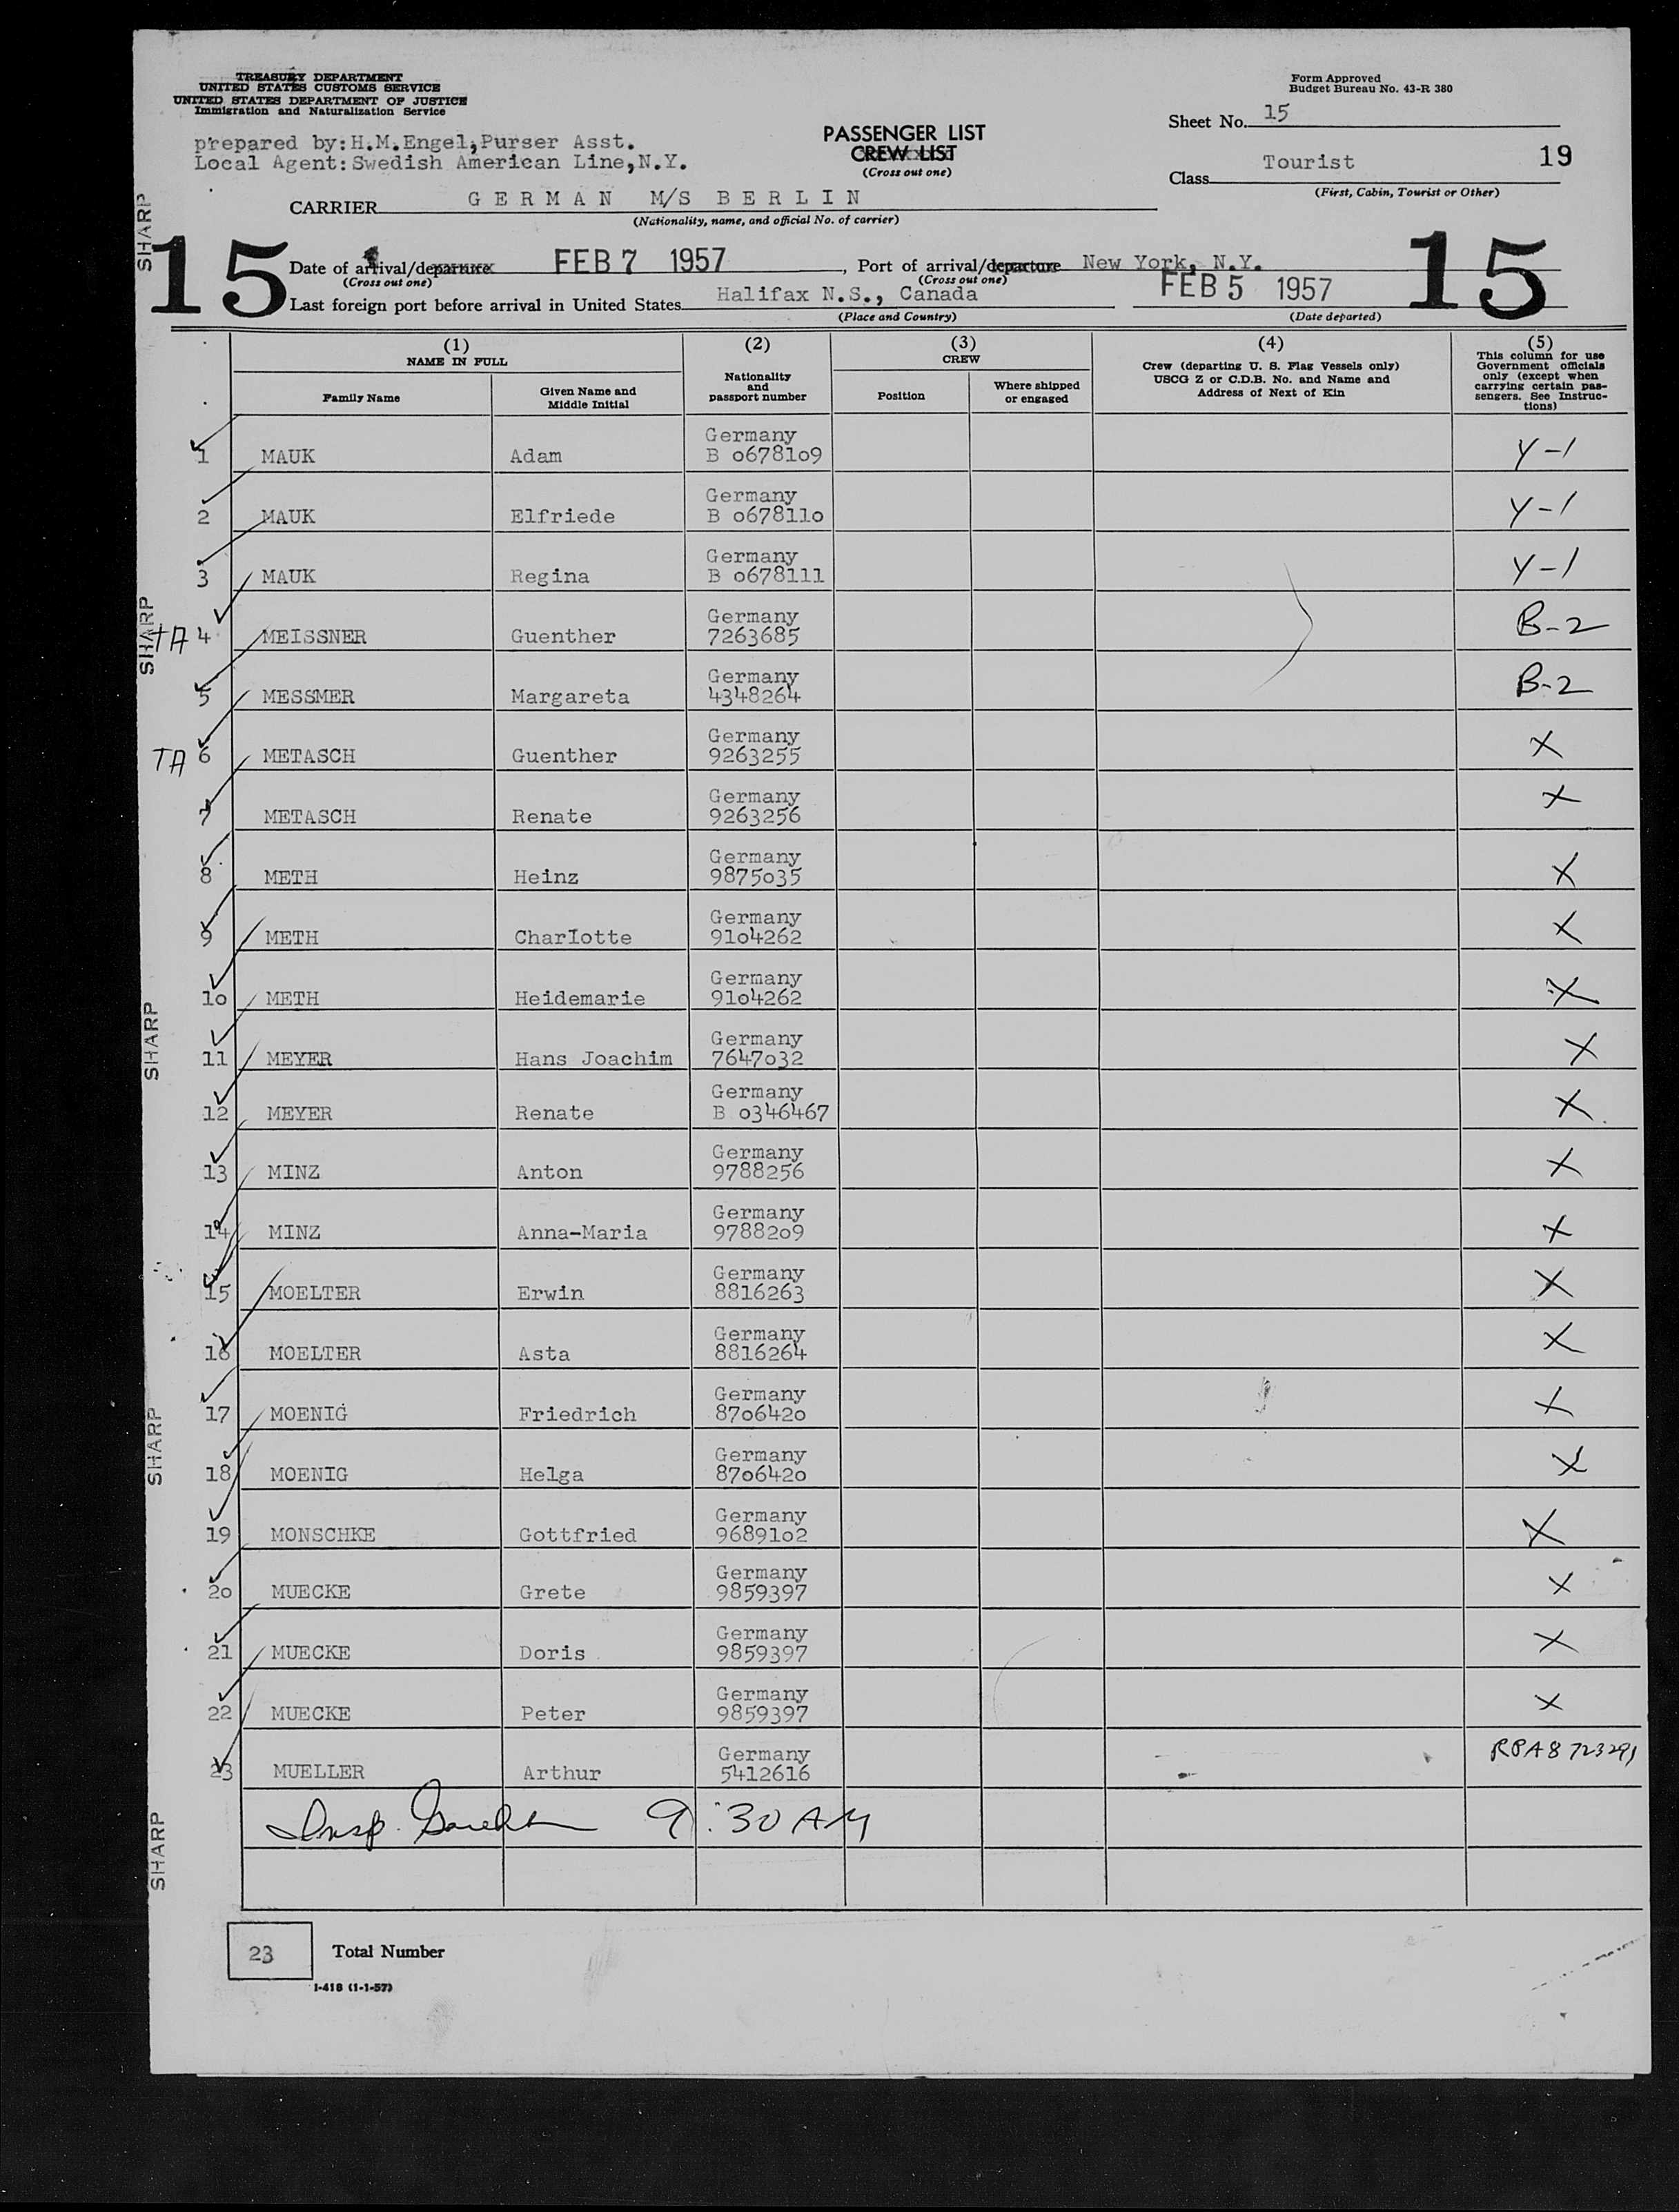 TREASURY DEPARTMENT
UNITED STATES CUSTOMS SERVICE
UNITED STATES DEPARTMENT OF JUSTICE
Immigration and Naturalization Service
Form Approved
Budget Bureau No. 43-R 380
prepared by: H.M.Engel,Purser Asst.
Local Agent:Swedish American Line,N.Y.
PASSENGER LIST
CREW LIST
(Cross out one)
Sheet No. 15
Class Tourist 19
(First, Cabin, Tourist or Other)
CARRIER GERMAN M/S BERLIN
(Nationality, name, and official No. of carrier)
15
Date of arrival/departure FEB 7 1957, Port of arrival/departure New York, N.Y.
(Cross out one) (Cross out one)
Last foreign port before arrival in United States Halifax N.S., Canada FEB 5 1957
(Place and Country) (Date departed)
15
(1) NAME IN FULL
Family Name
Given Name and Middle Initial
(2) Nationality and passport number
(3) CREW
Position
Where shipped or engaged
(4) Crew (departing U. S. Flag Vessels only) USCG Z or C.D.B. No. and Name and Address of Next of Kin
(5) This column for use Government officials only (except when carrying certain passengers. See Instructions)
1 MAUK Adam Germany B 0678109 Y-1
2 MAUK Elfriede Germany B 0678110 Y-1
3 MAUK Regina Germany B 0678111 Y-1
TA 4 MEISSNER Guenther Germany 7263685 B-2
5 MESSMER Margareta Germany 4348264 B-2
TA 6 METASCH Guenther Germany 9263255 X
7 METASCH Renate Germany 9263256 X
8 METH Heinz Germany 9875035 X
9 METH Charlotte Germany 9104262 X
10 METH Heidemarie Germany 9104262 X
11 MEYER Hans Joachim Germany 7647032 X
12 MEYER Renate Germany B 0346467 X
13 MINZ Anton Germany 9788256 X
14 MINZ Anna-Maria Germany 9788209 X
15 MOELTER Erwin Germany 8816263 X
16 MOELTER Asta Germany 8816264 X
17 MOENIG Friedrich Germany 8706420 X
18 MOENIG Helga Germany 8706420 X
19 MONSCHKE Gottfried Germany 9689102 X
20 MUECKE Grete Germany 9859397 X
21 MUECKE Doris Germany 9859397 X
22 MUECKE Peter Germany 9859397 X
23 MUELLER Arthur Germany 5412616 RPA8723291
Insp. 9:30 AM
23 Total Number
I-418 (1-1-57)
SHARP
SHARP
SHARP
SHARP
SHARP